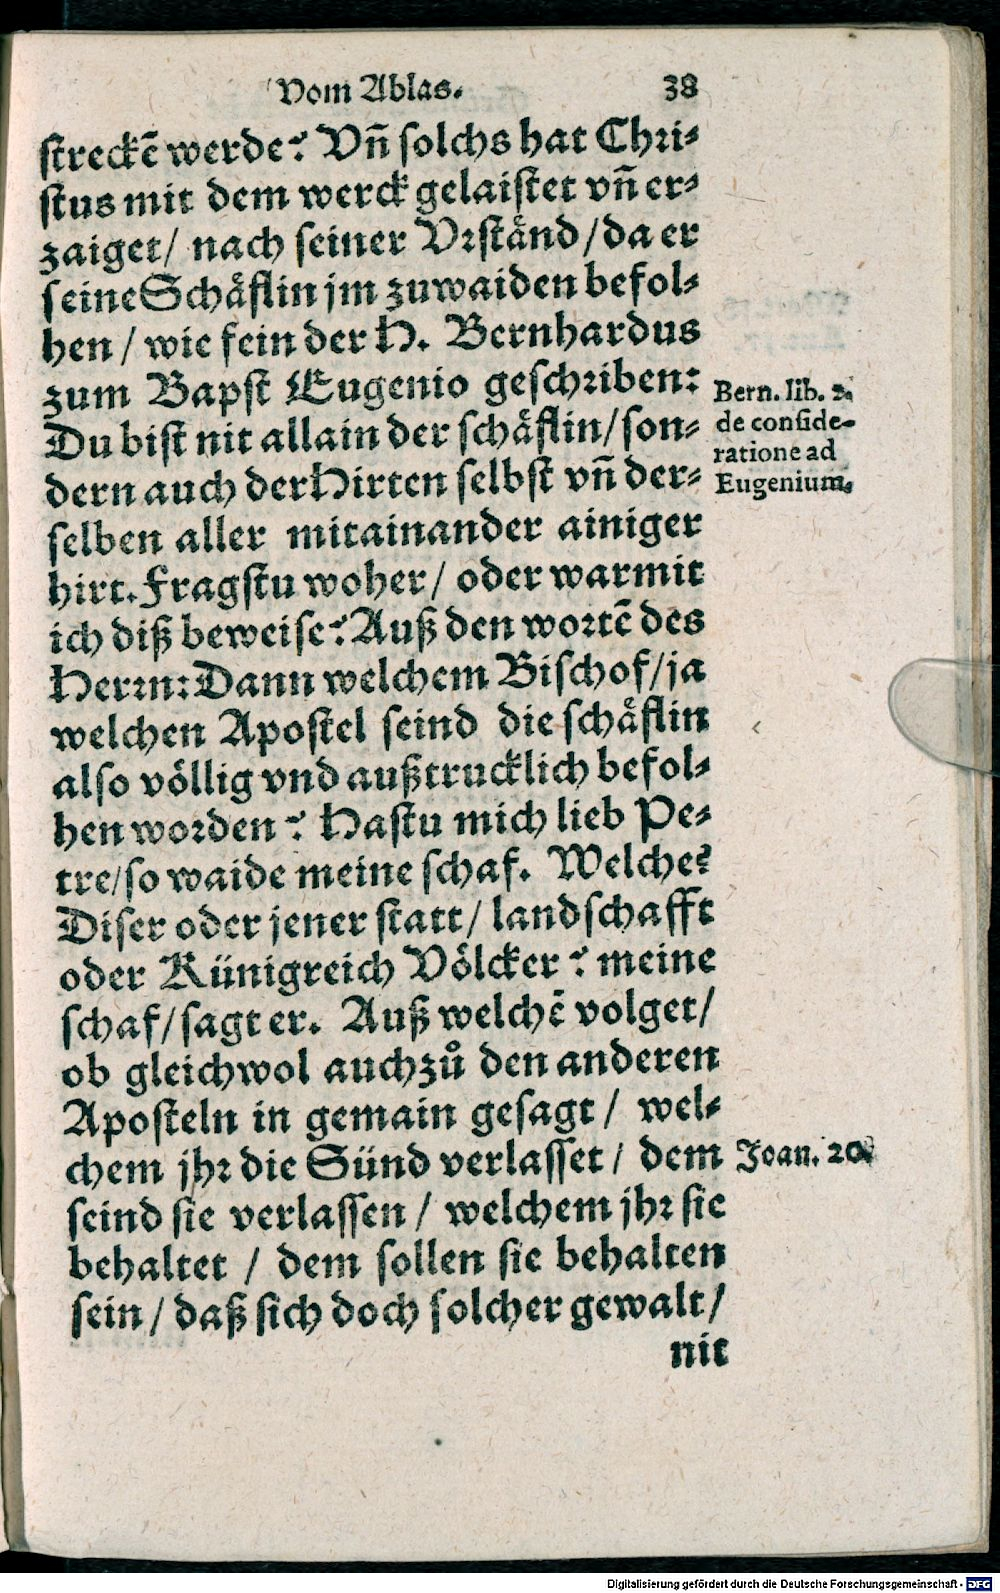 Vom Ablas. 38
streckē werde? Vñ solchs hat Chri-
stus mit dem werck gelaistet vñ er-
zaiget/ nach seiner Vrständ/da er
seine Schäflin jm zuwaiden befol-
hen/ wie fein der H. Bernhardus
zum Bapst Eugenio geschriben:
Du bist nit allain der schäflin/son-
dern auch der Hirten selbst vñ der-
selben aller mitainander ainiger
hirt. Fragstu woher/ oder warmit
ich diß beweise? Auß den wortē des
Herrn: Dann welchem Bischof/ja
welchen Apostel seind die schäflin
also völlig vnd außtrucklich befol-
hen worden? Hastu mich lieb Pe-
tre/so waide meine schaf. Welche?
Diser oder jener statt/ landschafft
oder Künigreich Völcker? meine
schaf/sagt er. Auß welchē volget/
ob gleichwol auch zů den anderen
Aposteln in gemain gesagt/ wel-
chem jhr die Sünd verlasset/ dem
seind sie verlassen/ welchem jhr sie
behaltet/ dem sollen sie behalten
sein/ daß sich doch solcher gewalt/
nit
Bern. lib. 2.
de conside-
ratione ad
Eugenium.
Joan. 20.
Digitalisierung gefördert durch die Deutsche Forschungsgemeinschaft - DFG